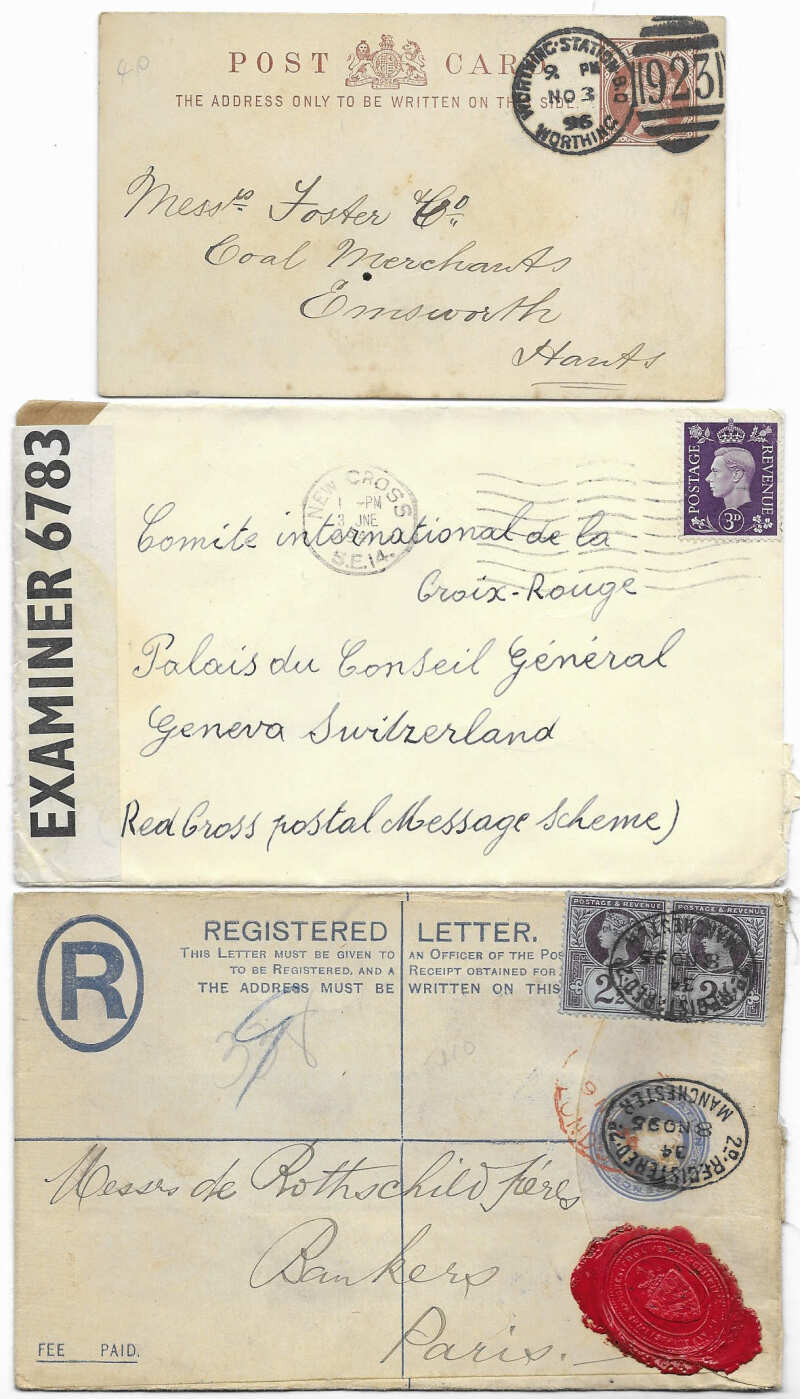 4.0
POST CARD
THE ADDRESS ONLY TO BE WRITTEN ON THIS SIDE.
WORTHING·STATION B.O
9 PM
NO 3
96
WORTHING
923
Messrs Foster & Co
Coal Merchants
Emsworth
Hants
EXAMINER 6783
NEW CROSS
1 -PM
3 JNE
S.E.14.
POSTAGE REVENUE
3D
Comite international de la
Croix-Rouge
Palais du Conseil Général
Geneva Switzerland
Red Cross postal Message Scheme)
R
REGISTERED LETTER.
THIS LETTER MUST BE GIVEN TO AN OFFICER OF THE POS
TO BE REGISTERED, AND A RECEIPT OBTAINED FOR
THE ADDRESS MUST BE WRITTEN ON THIS
POSTAGE & REVENUE
POSTAGE & REVENUE
2½
2½
REGISTERED·2D
MANCHESTER
34
8 NO 95
2D·REGISTERED·2D
MANCHESTER
34
8 NO 95
Messrs de Rothschild frères
Bankers
Paris.
FEE PAID.